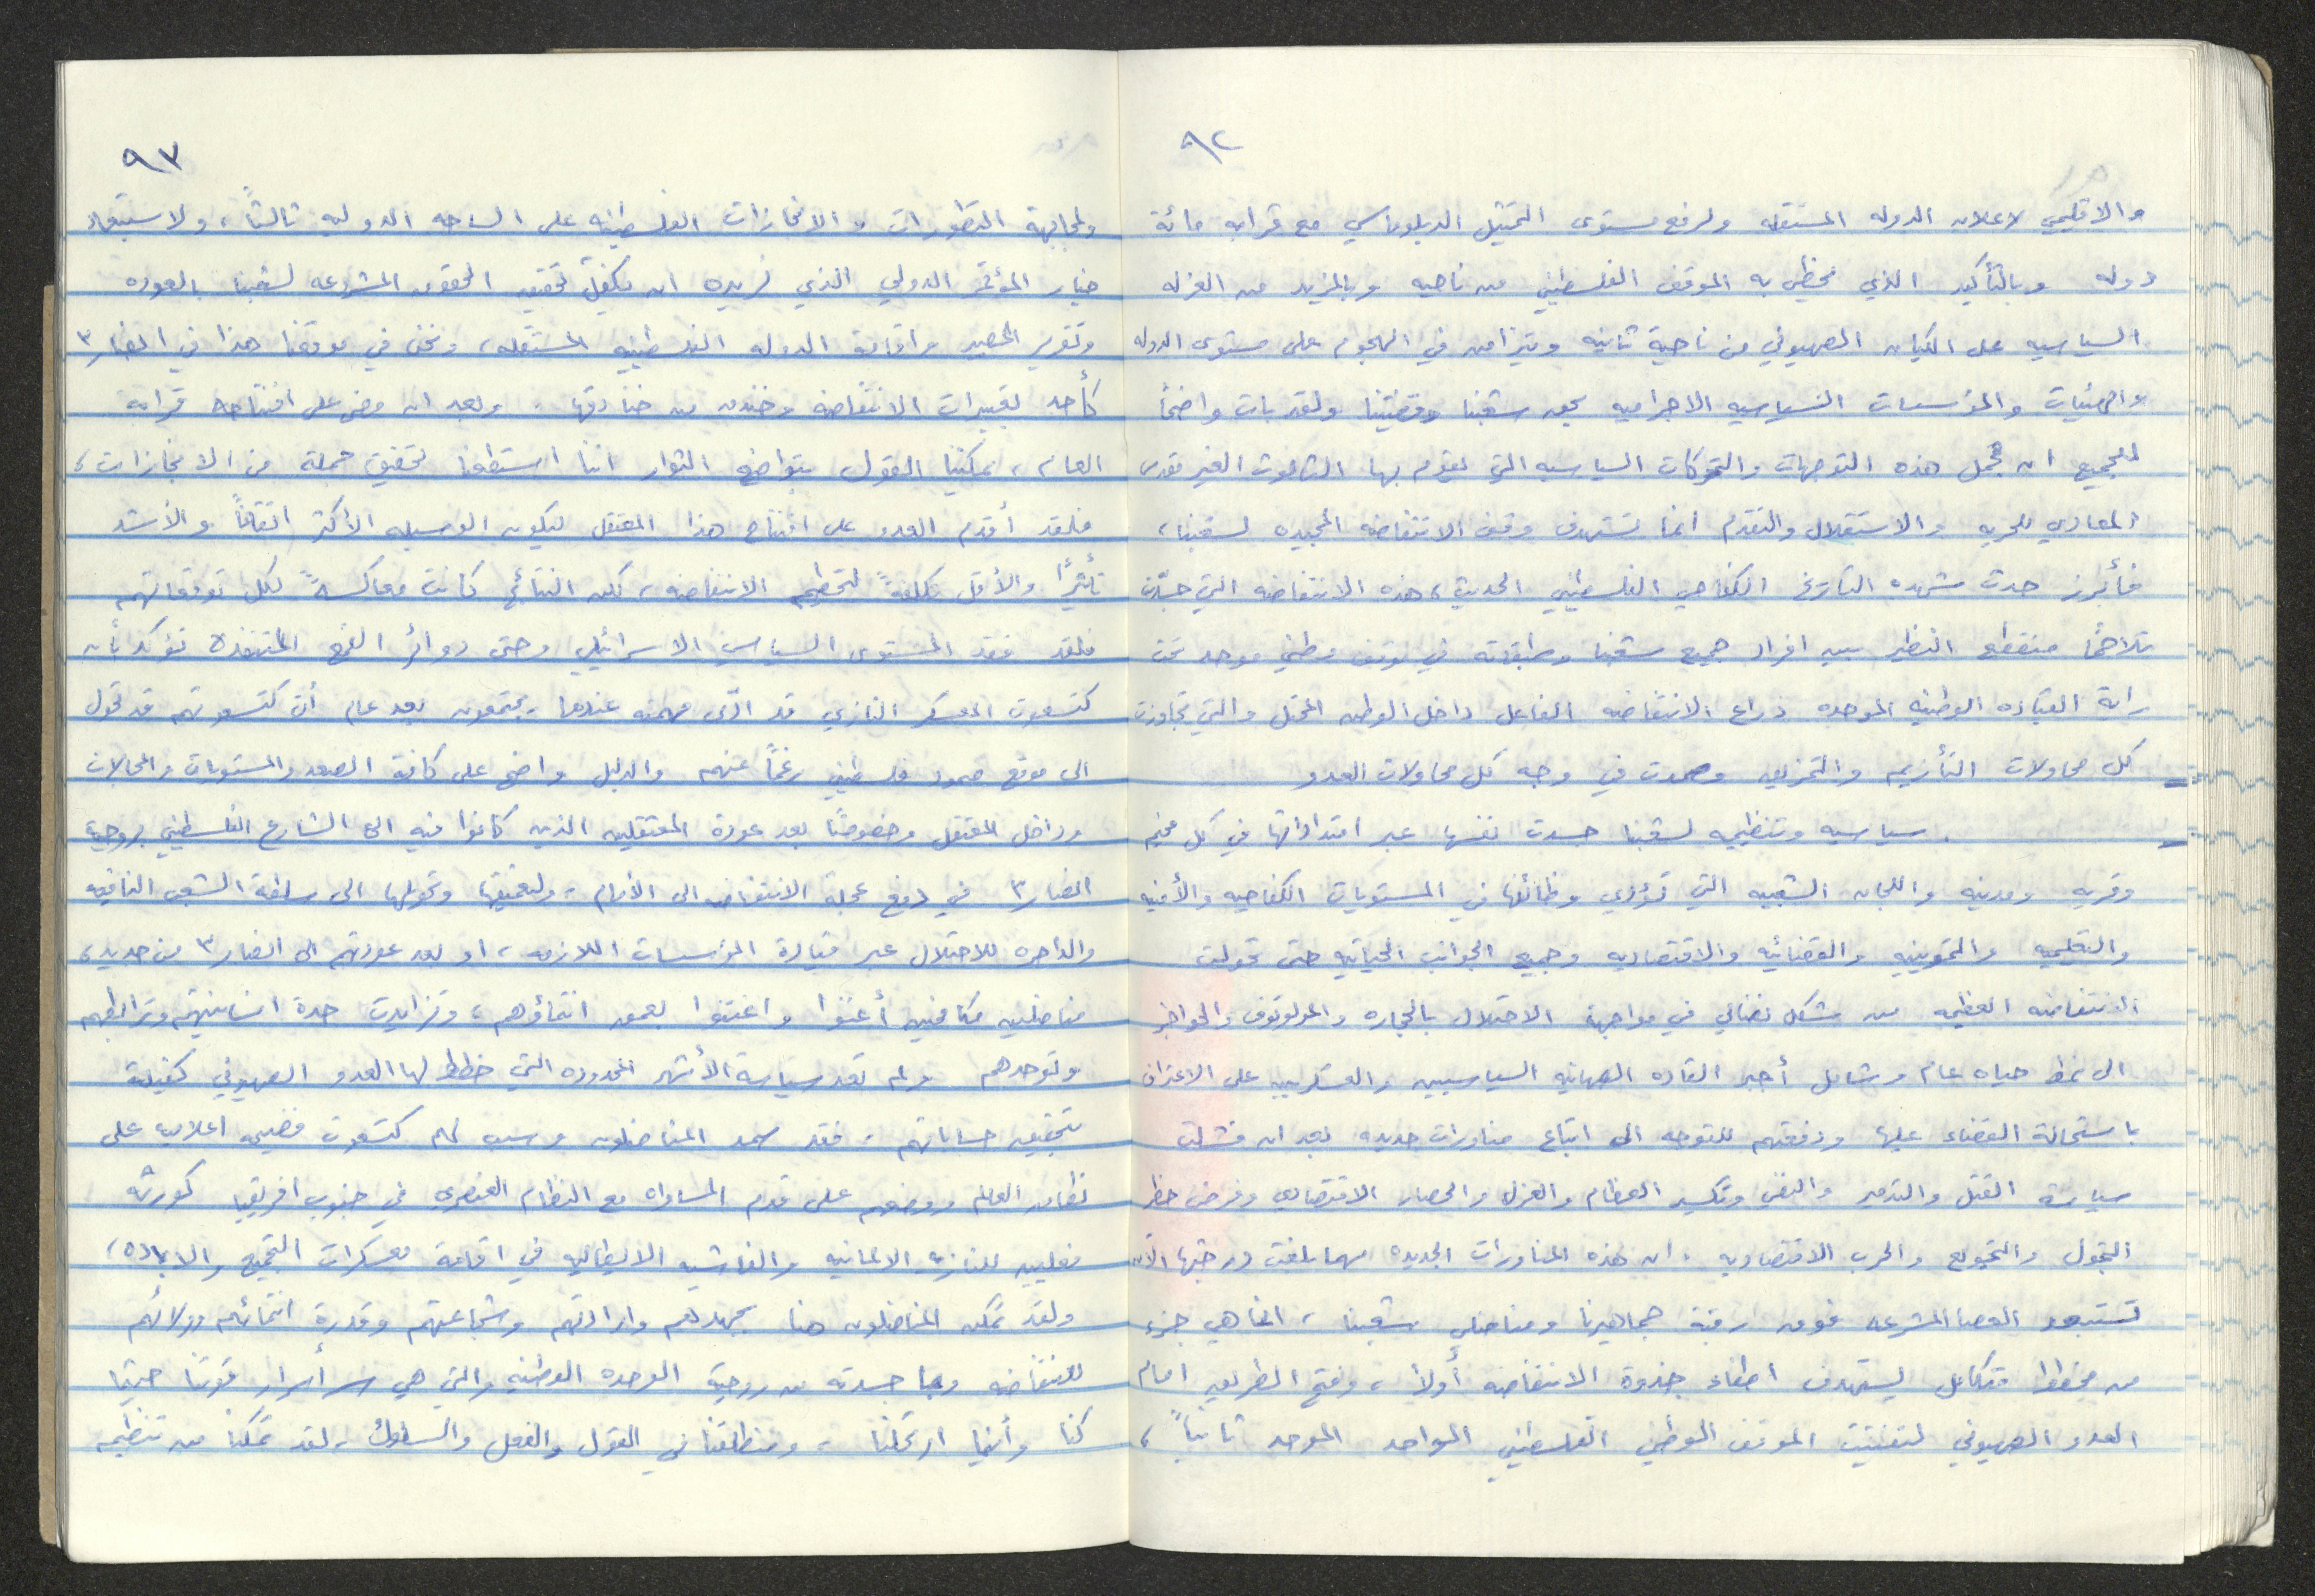 ٩٢
والاقليمي لاعلان الدوله المستقله ولرفع مستوى التمثيل الدبلوماسي مع قرابه مائة
دوله وبالتأكيد الذي يحظى به الموقف الفلسطيني من ناحيه وبالمزيد من العزله
السياسيه على الكيان الصهيوني من ناحية ثانيه ويتزامن في الهجوم على مستوى الدوله
والهيئات والمؤسسات السياسيه الاجراميه بحق شعبنا وقضيتنا ولقد بات واضحاً
للجميع ان مجمل هذه التوجهات والتحركات السياسيه التي يقوم بها الثالوث الغير مقدس
المعادي للحريه والاستقلال والتقدم انما تستهدف وقف الانتفاضه المجيده لشعبنا،
فأبرز حدث شهده التاريخ الكفاحي الفلسطيني الحديث، هذه الانتفاضه التي جسّدت
تلاحماً منقطع النظير بين افراد جميع شعبنا وطبقاته في موقف وطني موحد تحت
راية القياده الوطنيه الموحده ذراع الانتفاضه الفاعل داخل الوطن المحتل والتي تجاوزت
كل محاولات التأزيم والتمزيق وصمدت في وجه كل محاولات العدو
سياسيه وتنظيميه لشعبنا جسدت نفسها عبر امتداداتها في كل مخيم
وقريه ومدينه واللجان الشعبيه التي تؤدي وظائفها في المستويات الكفاحيه والأمنيه
والتعليميه والتموينيه والقضائيه والاقتصاديه وجميع الجوانب الحياتيه حتى تحولت
الانتفاضه العظيمه من شكل نضالي في مواجهة الاحتلال بالحجاره والمولوتوف والحواجز
الى نمط حياه عام وشامل أجبر القاده الصهاينه السياسيين والعسكريين على الاعتراف
باستحالة القضاء عليها ودفعتهم للتوجه الى اتباع مناورات جديده بعد ان فشلت
سياسة القتل والتدمير والنفي وتكسير العظام والعزل والحصار الاقتصادي وفرض حظر
التجول والتجويع والحرب الاقتصاديه. ان هذه المناورات الجديده مهما بلغت درجتها الآن
تستبعد العصا المشرعه فوق رقبة جماهيرنا ومناضلي شعبنا، انما هي جزء
من مخطط متكامل يستهدف اطفاء جذوة الانتفاضه أولاً، وفتح الطريق امام
العدو الصهيوني لتفتيت الموقف الوطني الفلسطيني الواحد الموحد ثانياً،
٩٣
ولمجابهة التطورات والانجازات الفلسطينيه على الساحه الدوليه ثالثاً، ولاستبعاد
خيار المؤتمر الدولي الذي نريده ان يكفل تحقيق الحقوق المشروعه لشعبنا بالعوده
وتقرير المصير واقامة الدوله الفلسطينيه المستقله، ونحن في موقعنا هذا في انصار ٣
كأحد تعبيرات الانتفاضه وخندق من خنادقها. وبعد ان مضى على افتتاحه قرابة
العام، يمكننا القول بتواضع الثوار اننا استطعنا تحقيق جملة من الانجازات،
فلقد أقدم العدو على افتتاح هذا المعتقل ليكون الوسيله الأكثر اتقاناً والأشد
تأثيرًا والأقل تكلفةً لتحطيم الانتفاضه، لكن النتائج كانت معاكسةً لكل توقعاتهم
فلقد فقد المستوى السياسي الاسرائيلي وحتى دوائر القمع المتنفذه تؤكد بأن
كتسعوت المعسكر النازي قد أدّى مهمته عندما يجتمعون بعد عام أن كتسعوتهم قد تحول
الى موقع صمود فلسطيني رغماً عنهم والدليل واضح على كافة الصعد والمستويات والمجالات
وداخل المعتقل وخصوصًا بعد عودة المعتقلين الذين كانوا فيه الى الشارع الفلسطيني بروحية
انصار٣ في دفع عجلة الانتفاضه الى الأمام، ولتعميقها وتحولها الى سلطة الشعب النافيه
والداحره للاحتلال عبر قيادة المؤسسات اللازمه، او بعد عودتهم الى انصار ٣ من جديد،
مناضلين مكافحين أغنوا واغتنوا بعمق انتماؤهم، وتزايدت حدة انسانيتهم وترابطهم
وتوحدهم ولم تعد سياسة الأشهر المحدوده التي خطط لها العدو الصهيوني كفيلة
بتحقيق حساباتهم. فقد صمد المناضلون وسبب لهم كتسعوت فضيحه اعلاميه على
نطاق العالم ووضعهم على قدم المساواه مع النظام العنصري في جنوب افريقيا كورثه
فعليين للنازيه الالمانيه والفاشيه الايطاليه في اقامة معسكرات التجميع والاباده،
ولقد تمكن المناضلون هنا بجهدهم وارادتهم وشجاعتهم وقدرة انتمائهم وولائهم
للانتفاضه وبما جسدته من روحية الوحده الوطنيه والتي هي سر أسرار قوتنا حيثما
كنا وأينما ارتحلنا، ومنطلقنا في القول والفعل والسلوك، لقد تمكنا من تنظيم